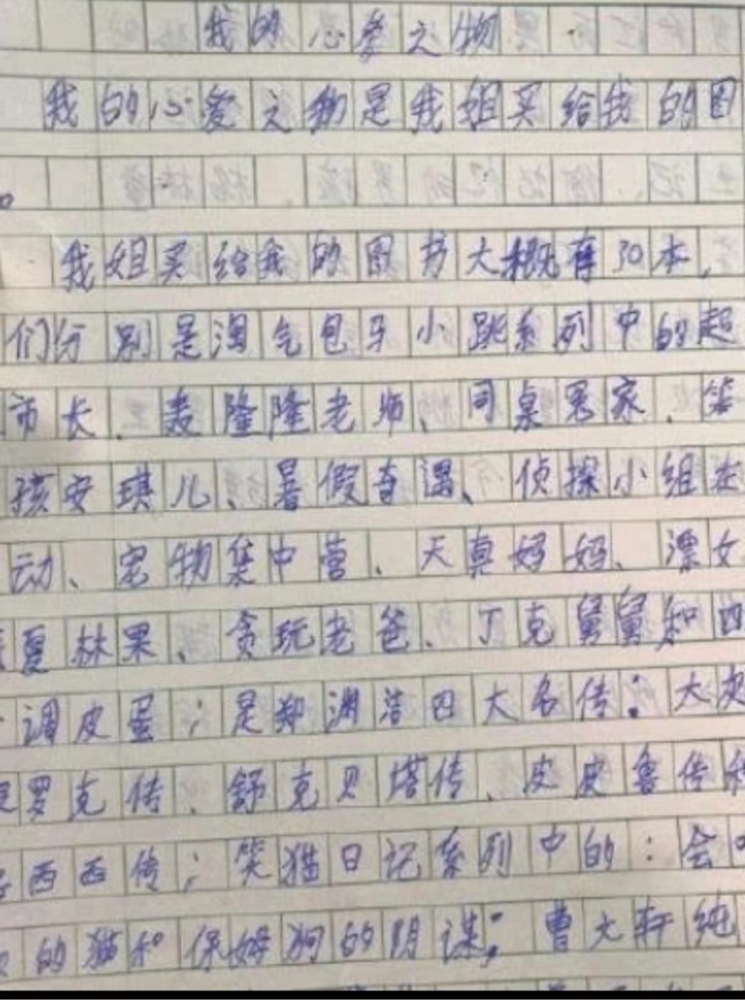 我的心爱之物
我的心爱之物是我姐买给我的图
。
我姐买给我的图书大概有30本,
们分别是淘气包马小跳系列中的超
市长、轰隆隆老师、同桌冤家、笨
孩安琪儿、暑假奇遇、侦探小组在
动、宠物集中营、天真妈妈、漂女
夏林果、贪玩老爸、丁克舅舅和四
调皮蛋;是郑渊洁四大名传:大灰
罗克传、舒克贝塔传、皮皮鲁传和
西西传;笑猫日记系列中的:会
的猫和保姆狗的阴谋;曹文轩纯